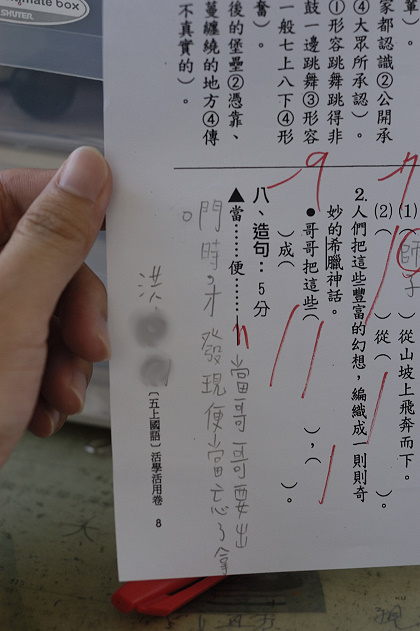 mate box
SHUTER
）。
家都認識②公開承
④大眾所承認）。
①形容跳舞跳得非
鼓一邊跳舞③形容
一般七上八下④形
奮）。
後的堡壘②憑靠、
蔓纏繞的地方④傳
不真實的）。
(1)（師子）從山坡上飛奔而下。
(2)（　）從（　）。
2.人們把這些豐富的幻想，編織成一則則奇
妙的希臘神話。
●哥哥把這些（　），（　
成（　）。
八、造句：5分
▲當……便……當哥哥要出
門時，才發現便當忘了拿
。
洪
〔五上國語〕活學活用卷 8